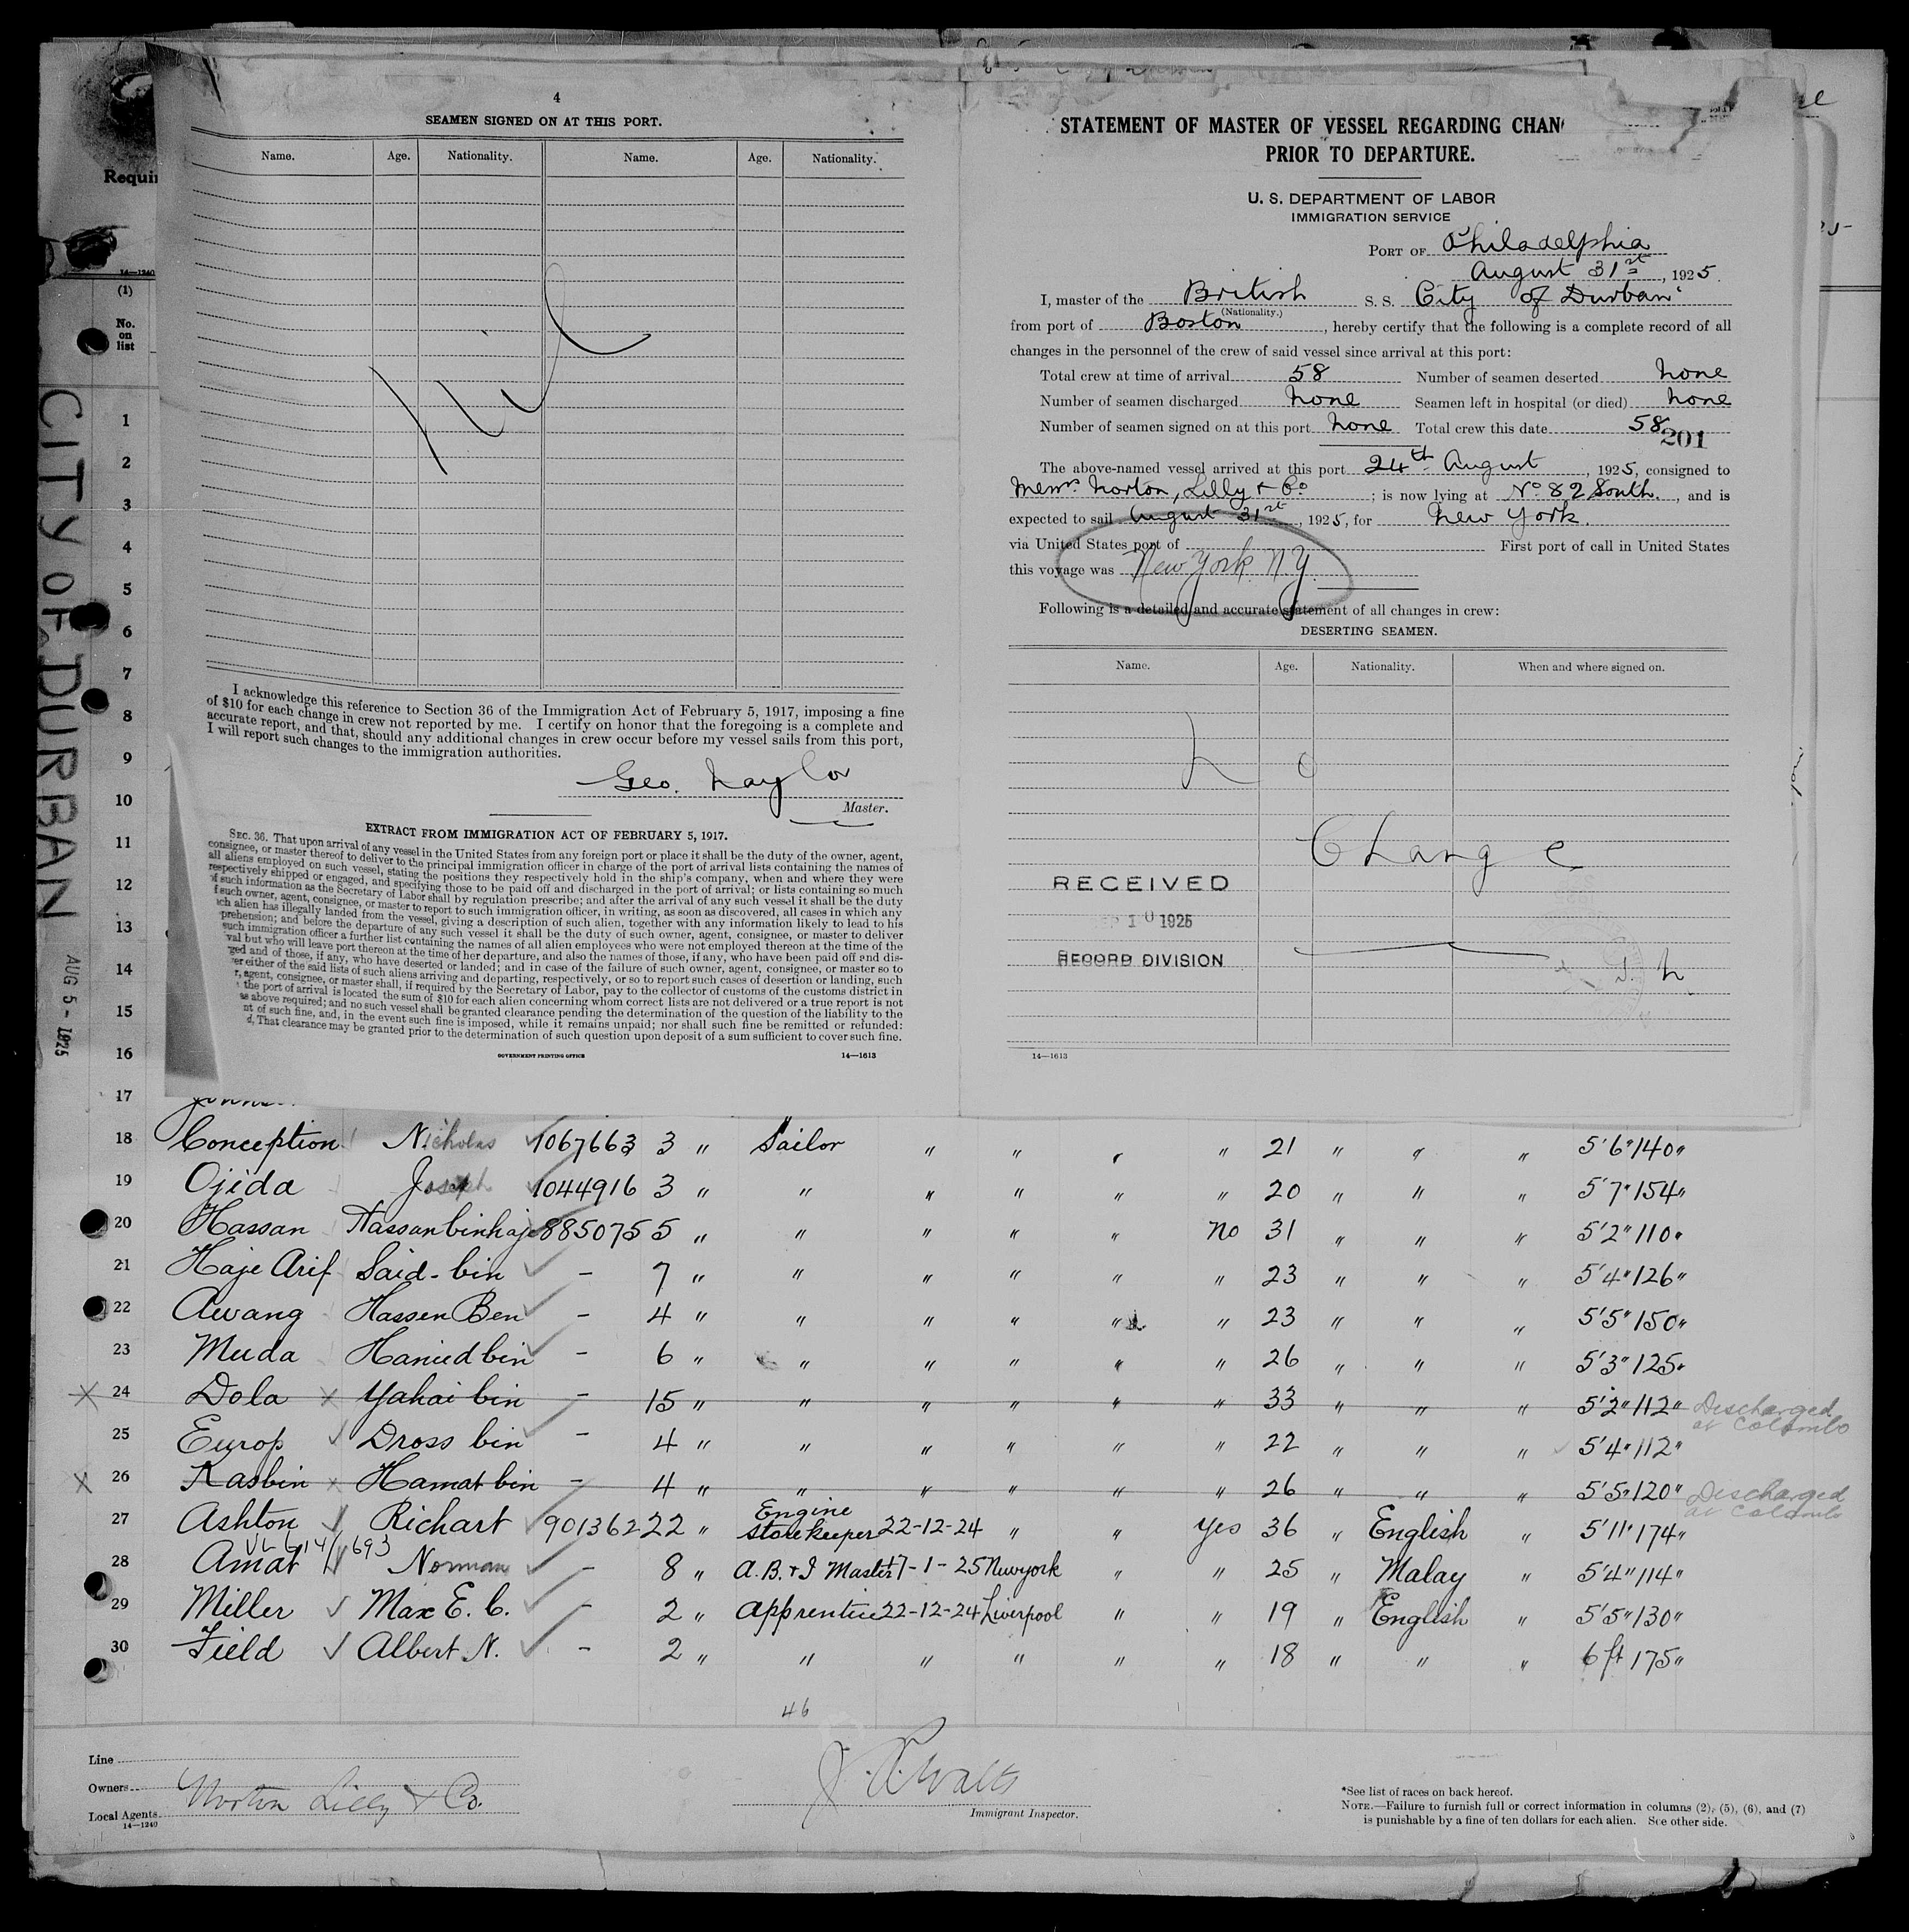 4
SEAMEN SIGNED ON AT THIS PORT.
Name. Age. Nationality. Name. Age. Nationality.
Nil
I acknowledge this reference to Section 36 of the Immigration Act of February 5, 1917, imposing a fine
of $10 for each change in crew not reported by me. I certify on honor that the foregoing is a complete and
accurate report, and that, should any additional changes in crew occur before my vessel sails from this port,
I will report such changes to the immigration authorities.
Geo. Naylor
Master.
EXTRACT FROM IMMIGRATION ACT OF FEBRUARY 5, 1917.
SEC. 36. That upon arrival of any vessel in the United States from any foreign port or place it shall be the duty of the owner, agent,
consignee, or master thereof to deliver to the principal immigration officer in charge of the port of arrival lists containing the names of
all aliens employed on such vessel, stating the positions they respectively hold in the ship's company, when and where they were
respectively shipped or engaged, and specifying those to be paid off and discharged in the port of arrival; or lists containing so much
of such information as the Secretary of Labor shall by regulation prescribe; and after the arrival of any such vessel it shall be the duty
f such owner, agent, consignee, or master to report to such immigration officer, in writing, as soon as discovered, all cases in which any
ch alien has illegally landed from the vessel, giving a description of such alien, together with any information likely to lead to his
prehension; and before the departure of any such vessel it shall be the duty of such owner, agent, consignee, or master to deliver
such immigration officer a further list containing the names of all alien employees who were not employed thereon at the time of the
val but who will leave port thereon at the time of her departure, and also the names of those, if any, who have been paid off and dis-
ged and of those, if any, who have deserted or landed; and in case of the failure of such owner, agent, consignee, or master so to
er either of the said lists of such aliens arriving and departing, respectively, or so to report such cases of desertion or landing, such
r, agent, consignee, or master shall, if required by the Secretary of Labor, pay to the collector of customs of the customs district in
the port of arrival is located the sum of $10 for each alien concerning whom correct lists are not delivered or a true report is not
as above required; and no such vessel shall be granted clearance pending the determination of the question of the liability to the
nt of such fine, and, in the event such fine is imposed, while it remains unpaid; nor shall such fine be remitted or refunded:
d, That clearance may be granted prior to the determination of such question upon deposit of a sum sufficient to cover such fine.
GOVERNMENT PRINTING OFFICE 14—1613
STATEMENT OF MASTER OF VESSEL REGARDING CHAN
PRIOR TO DEPARTURE.
U. S. DEPARTMENT OF LABOR
IMMIGRATION SERVICE
PORT OF Philadelphia
August 31st, 1925.
I, master of the British S. S. City of Durban
(Nationality.)
from port of Boston, hereby certify that the following is a complete record of all
changes in the personnel of the crew of said vessel since arrival at this port:
Total crew at time of arrival 58 Number of seamen deserted None
Number of seamen discharged None Seamen left in hospital (or died) None
Number of seamen signed on at this port None Total crew this date 58
201
The above-named vessel arrived at this port 24th August, 1925, consigned to
Messrs. Norton, Lilly & Co.; is now lying at No. 82 South, and is
expected to sail August 31st, 1925, for New York.
via United States port of First port of call in United States
this voyage was New York NY
Following is a detailed and accurate statement of all changes in crew:
DESERTING SEAMEN.
Name. Age. Nationality. When and where signed on.
No
Change
RECEIVED
1 0 1925
RECORD DIVISION
G. N.
14—1613
Requir
14—1240
(1)
No.
on
list
CITY OF DURBAN
AUG 5 - 1925
1
2
3
4
5
6
7
8
9
10
11
12
13
14
15
16
17
18 Conception Nicholas 1067663 3 " Sailor " " " " 21 " " " 5'6" 140"
19 Ojida Joseph 1044916 3 " " " " " " 20 " " " 5'7" 154"
20 Hassan Hassanbinhaje 885075 5 " " " " " No 31 " " " 5'2" 110"
21 Haje Arif Said-bin - 7 " " " " " " 23 " " " 5'4" 126"
22 Awang Hassen Ben - 4 " " " " " " 23 " " " 5'5" 150"
23 Muda Hamid bin - 6 " " " " " " 26 " " " 5'3" 125"
24 Dola Yahai bin - 15 " " " " " " 33 " " " 5'2" 112" Discharged at Colombo
25 Europ Dross bin - 4 " " " " " " 22 " " " 5'4" 112"
26 Kasbin Hamat bin - 4 " " " " " " 26 " " " 5'5" 120" Discharged at Colombo
27 Ashton Richart 901362 22 " Engine storekeeper 22-12-24 " " Yes 36 " English " 5'11" 174"
28 Amat Norman - 8 " A.B. + 17-1-25 Newyork " " 25 " Malay " 5'4" 114"
29 Miller Max E. C. - 2 " Apprentice 22-12-24 Liverpool " " 19 " English " 5'5" 130"
30 Field Albert N. - 2 " " " " " " 18 " " " 6 ft 175"
46
Line
Owners
Norton Lilly & Co.
Local Agents
14—1240
Immigrant Inspector.
*See list of races on back hereof.
NOTE.—Failure to furnish full or correct information in columns (2), (5), (6), and (7)
is punishable by a fine of ten dollars for each alien. See other side.